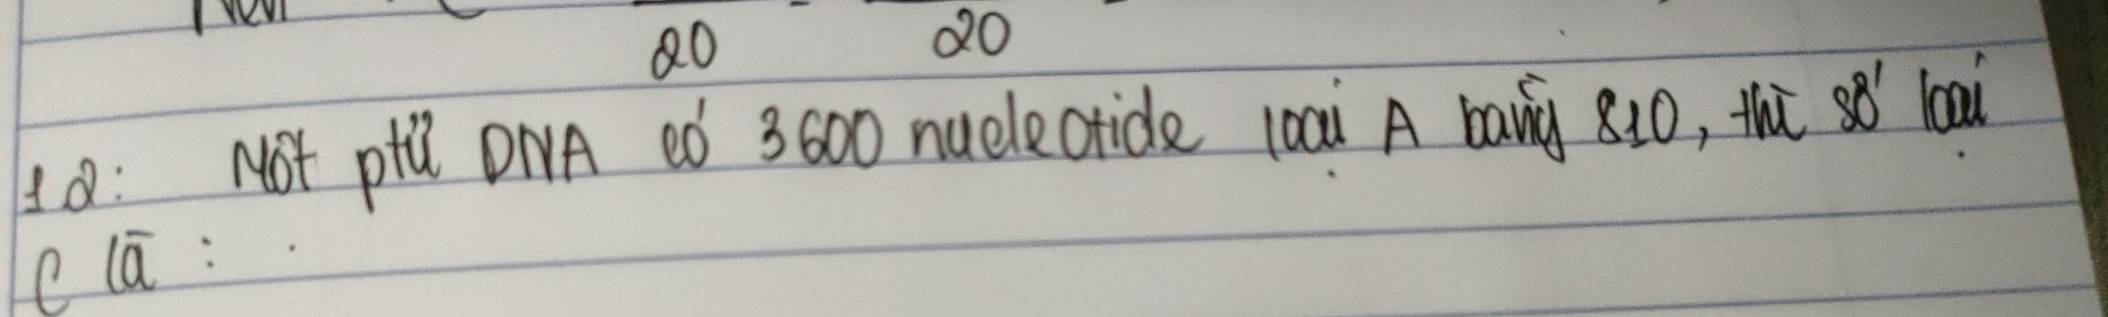 20 20
12: Một ptử DNA có 3600 nucleotide loại A bằng 810, thì số loại
C là :